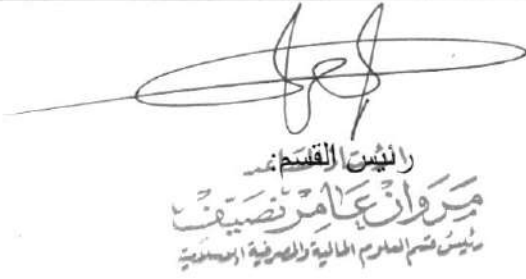 رئيس القسم:
مروان عامر نصيف
رئيس قسم العلوم المالية والمصرفية الاسلامية